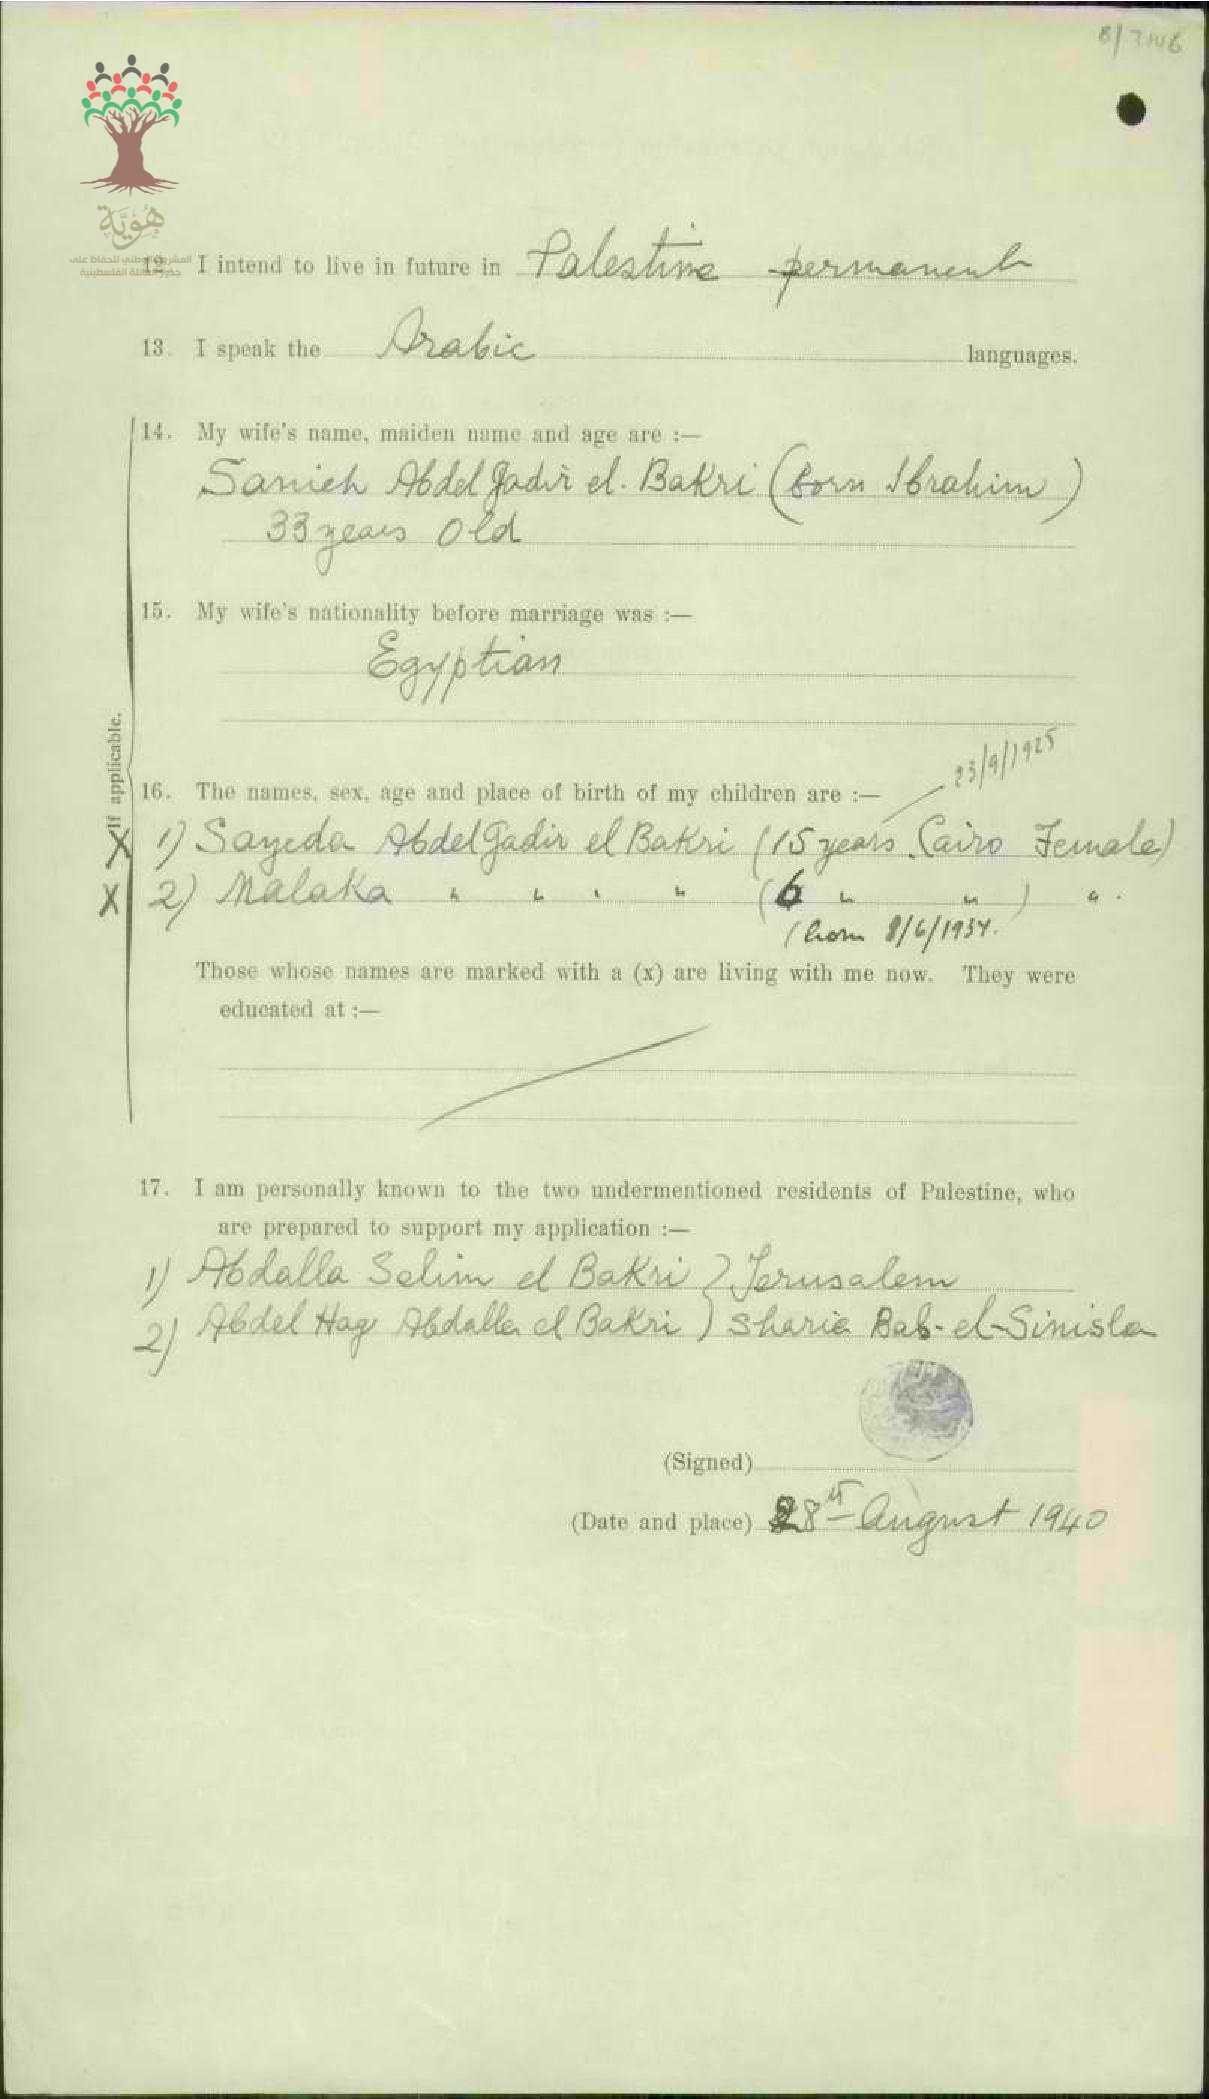 B/7146
هُوِيَّة
المشروع الوطني للحفاظ على
جذور العائلة الفلسطينية
12. I intend to live in future in Palestine permanent
13. I speak the Arabic languages.
If applicable.
14. My wife's name, maiden name and age are :—
Sanieh Abdel Gadir el. Bakri (born Ibrahim)
33 years old
15. My wife's nationality before marriage was :—
Egyptian
23/9/1925
16. The names, sex, age and place of birth of my children are :—
X 1) Sayeda Abdel Gadir el Bakri (15 years Cairo Female)
X 2) Malaka " " " " (6 " " ) " .
(born 8/6/1934.
Those whose names are marked with a (x) are living with me now. They were
educated at :—
17. I am personally known to the two undermentioned residents of Palestine, who
are prepared to support my application :—
1) Abdalla Selim el Bakri } Jerusalem
2) Abdel Hag Abdalla el Bakri ) Sharia Bab-el-Sinisla
(Signed)
(Date and place) 28th August 1940